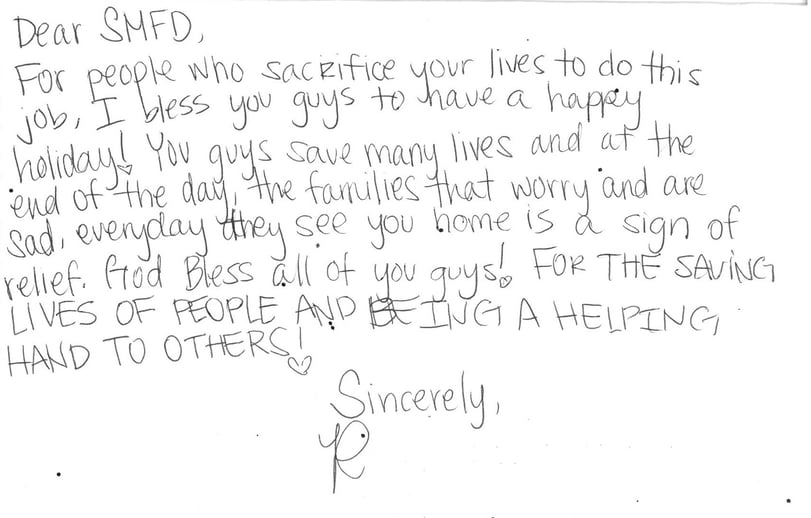 Dear SMFD,
For people who sacrifice your lives to do this
job, I bless you guys to have a happy
holiday! You guys save many lives and at the
end of the day, the families that worry and are
sad, everyday they see you home is a sign of
relief. God Bless all of you guys! FOR THE SAVING
LIVES OF PEOPLE AND BEING A HELPING
HAND TO OTHERS!
Sincerely,